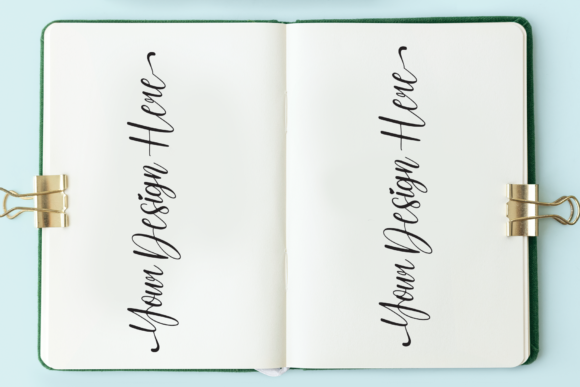 Your Design Here
Your Design Here